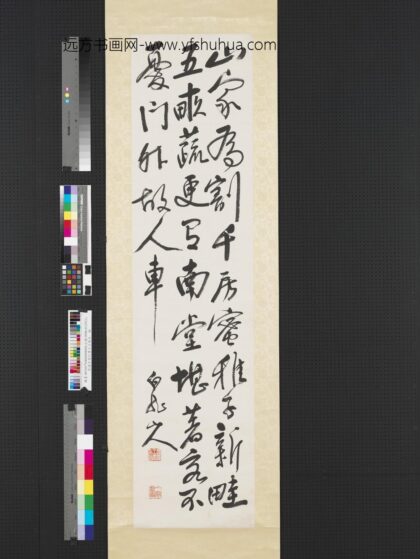 远方书画网-www.yfshuhua.com
山家為割千房蜜稚子新畦
五畝蔬更有南堂堪著客不
憂門外故人車
白龍山人